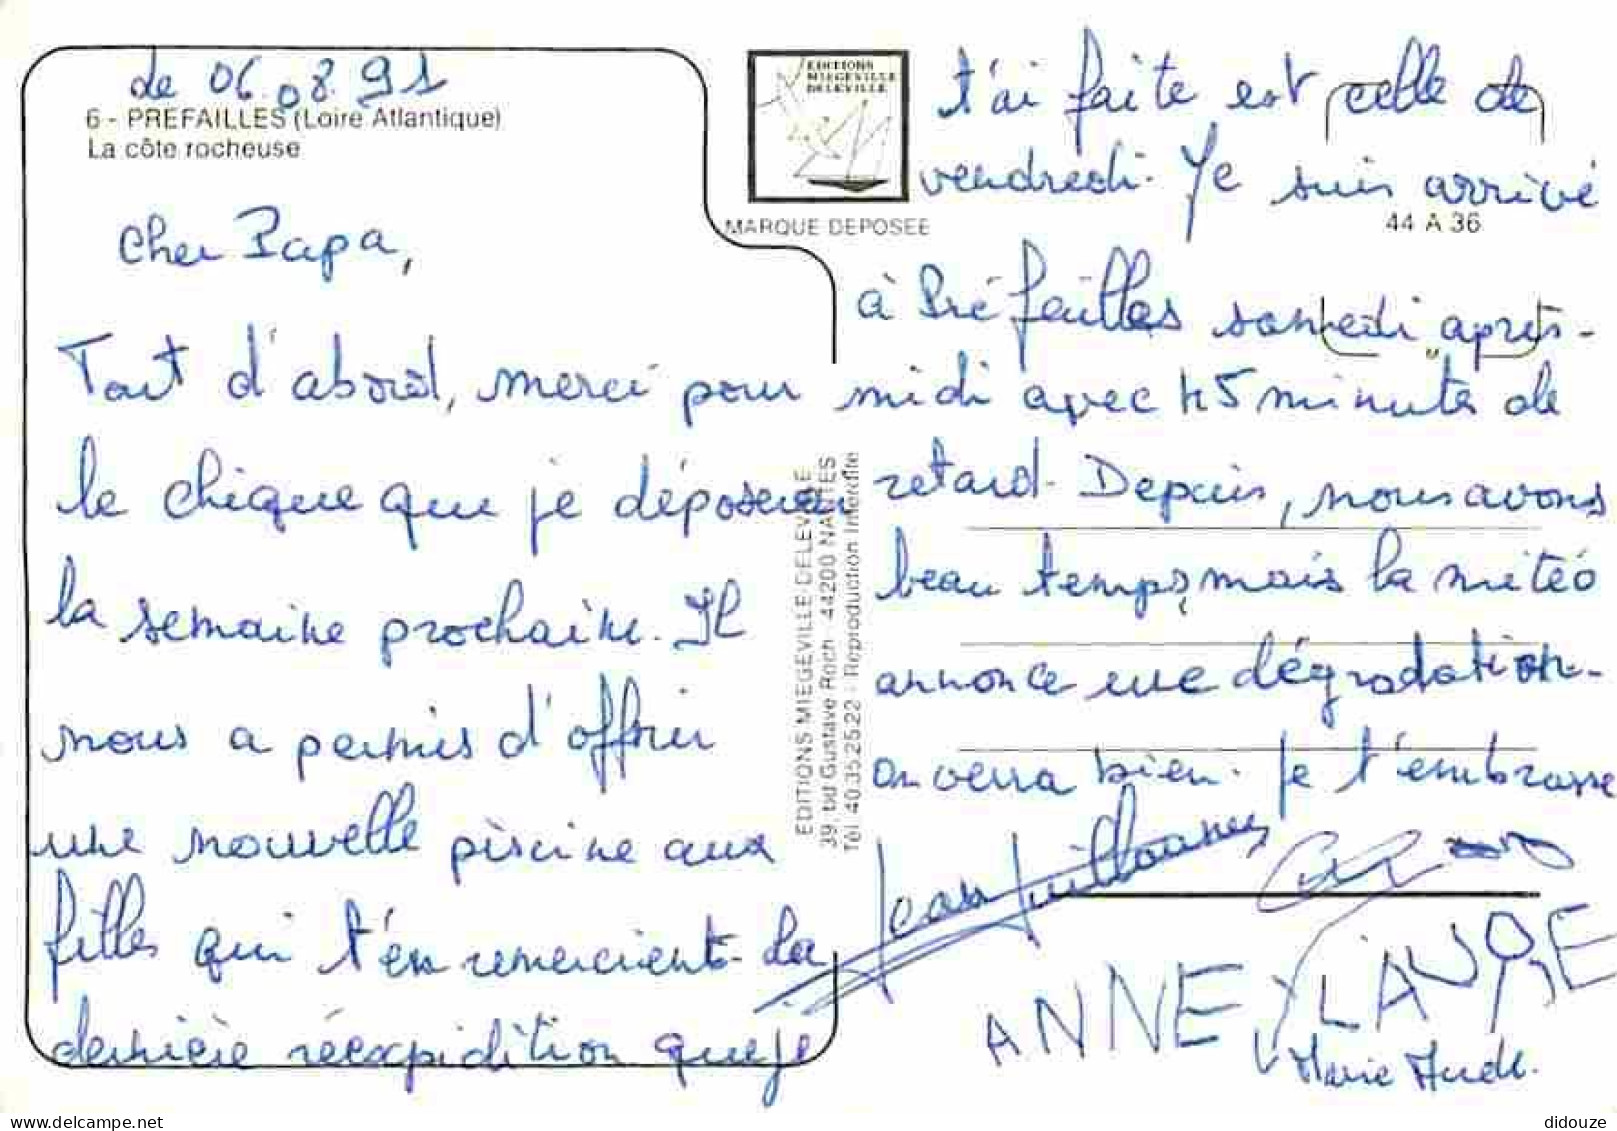 de 06.08.91
6 - PREFAILLES (Loire Atlantique)
La côte rocheuse
Cher Papa,
Tout d'abord, merci pour
le chèque que je déposerai
la semaine prochaine. Il
nous a permis d'offrir
une nouvelle piscine aux
filles qui t'en remercient. La
dernière réexpédition que je
EDITIONS
MIEGEVILLE
DELEVILLE
MARQUE DEPOSEE
44 A 36
EDITIONS MIEGEVILLE-DELEVILLE
39, bd Gustave Roch - 44200 NANTES
Tél. 40.35.25.22 - Reproduction Interdite
t'ai faite est celle de
vendredi. Je suis arrivé
à Préfailles samedi après-
midi avec 45 minutes de
retard. Depuis, nous avons
beau temps, mais la météo
annonce une dégradation.
on verra bien. Je t'embrasse
Jean
ANNE LAURE
Marie Aude.
didouze
delcampe.net